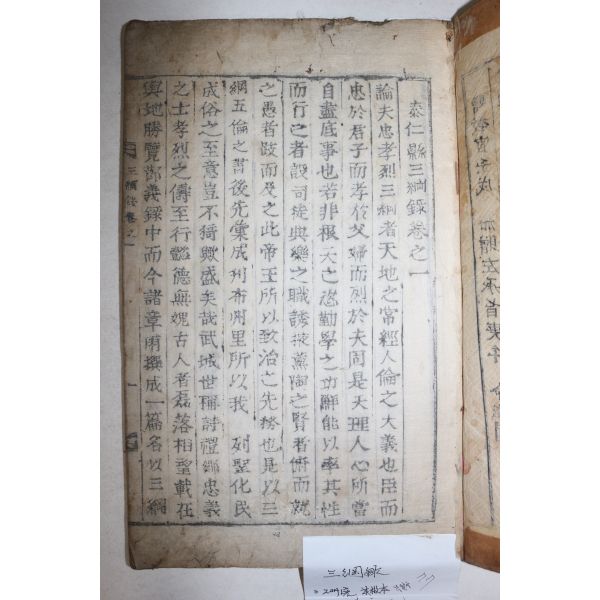 泰仁縣三綱錄卷之一
論夫忠孝烈三綱者天地之常經人倫之大義也臣而
忠於君子而孝於父婦而烈於夫罔是天理人心所當
自盡底事也若非根大之姿勤學之功鮮能以率其性
而行之者設司徒典樂之職誘掖薰陶之賢者俯而就
之愚者跂而及之此帝王所以致治之先務也是以三
綱五倫之書後先彙成刋布州里所以我 列聖化民
成俗之至意豈不猗歟盛矣哉武城世稱詩禮鄕忠義
之士孝烈之儔至行懿德無媿古人者磊落相望載在
輿地勝覽鄕義錄中而今諸章甫撰成一篇名以三綱
三綱錄卷之一
一
三綱錄